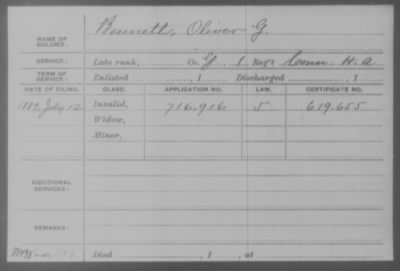 NAME OF SOLDIER: Bennett, Oliver G.
SERVICE: Late rank, Co. G, 1 Reg't Conn. H. A.
TERM OF SERVICE: Enlisted , 1 Discharged , 1
DATE OF FILING. CLASS. APPLICATION NO. LAW. CERTIFICATE NO.
1889, July 12 Invalid, 716.916 5 619.655
Widow,
Minor,
ADDITIONAL SERVICES:
REMARKS:
Died , 1 , at